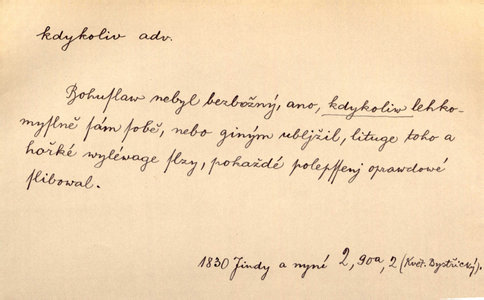 kdykoliv adv.
Bohuſlaw nebyl bezbožný, ano, kdykoliw lehko-
myſlně ſám ſobě, nebo giným ubljžil, lituge toho a
hořké wyléwage ſlzy, pokaždé polepſſenj oprawdowé
ſlibowal.
1830 Jindy a nyné 2, 90a, 2 (Květ. Bystřický).